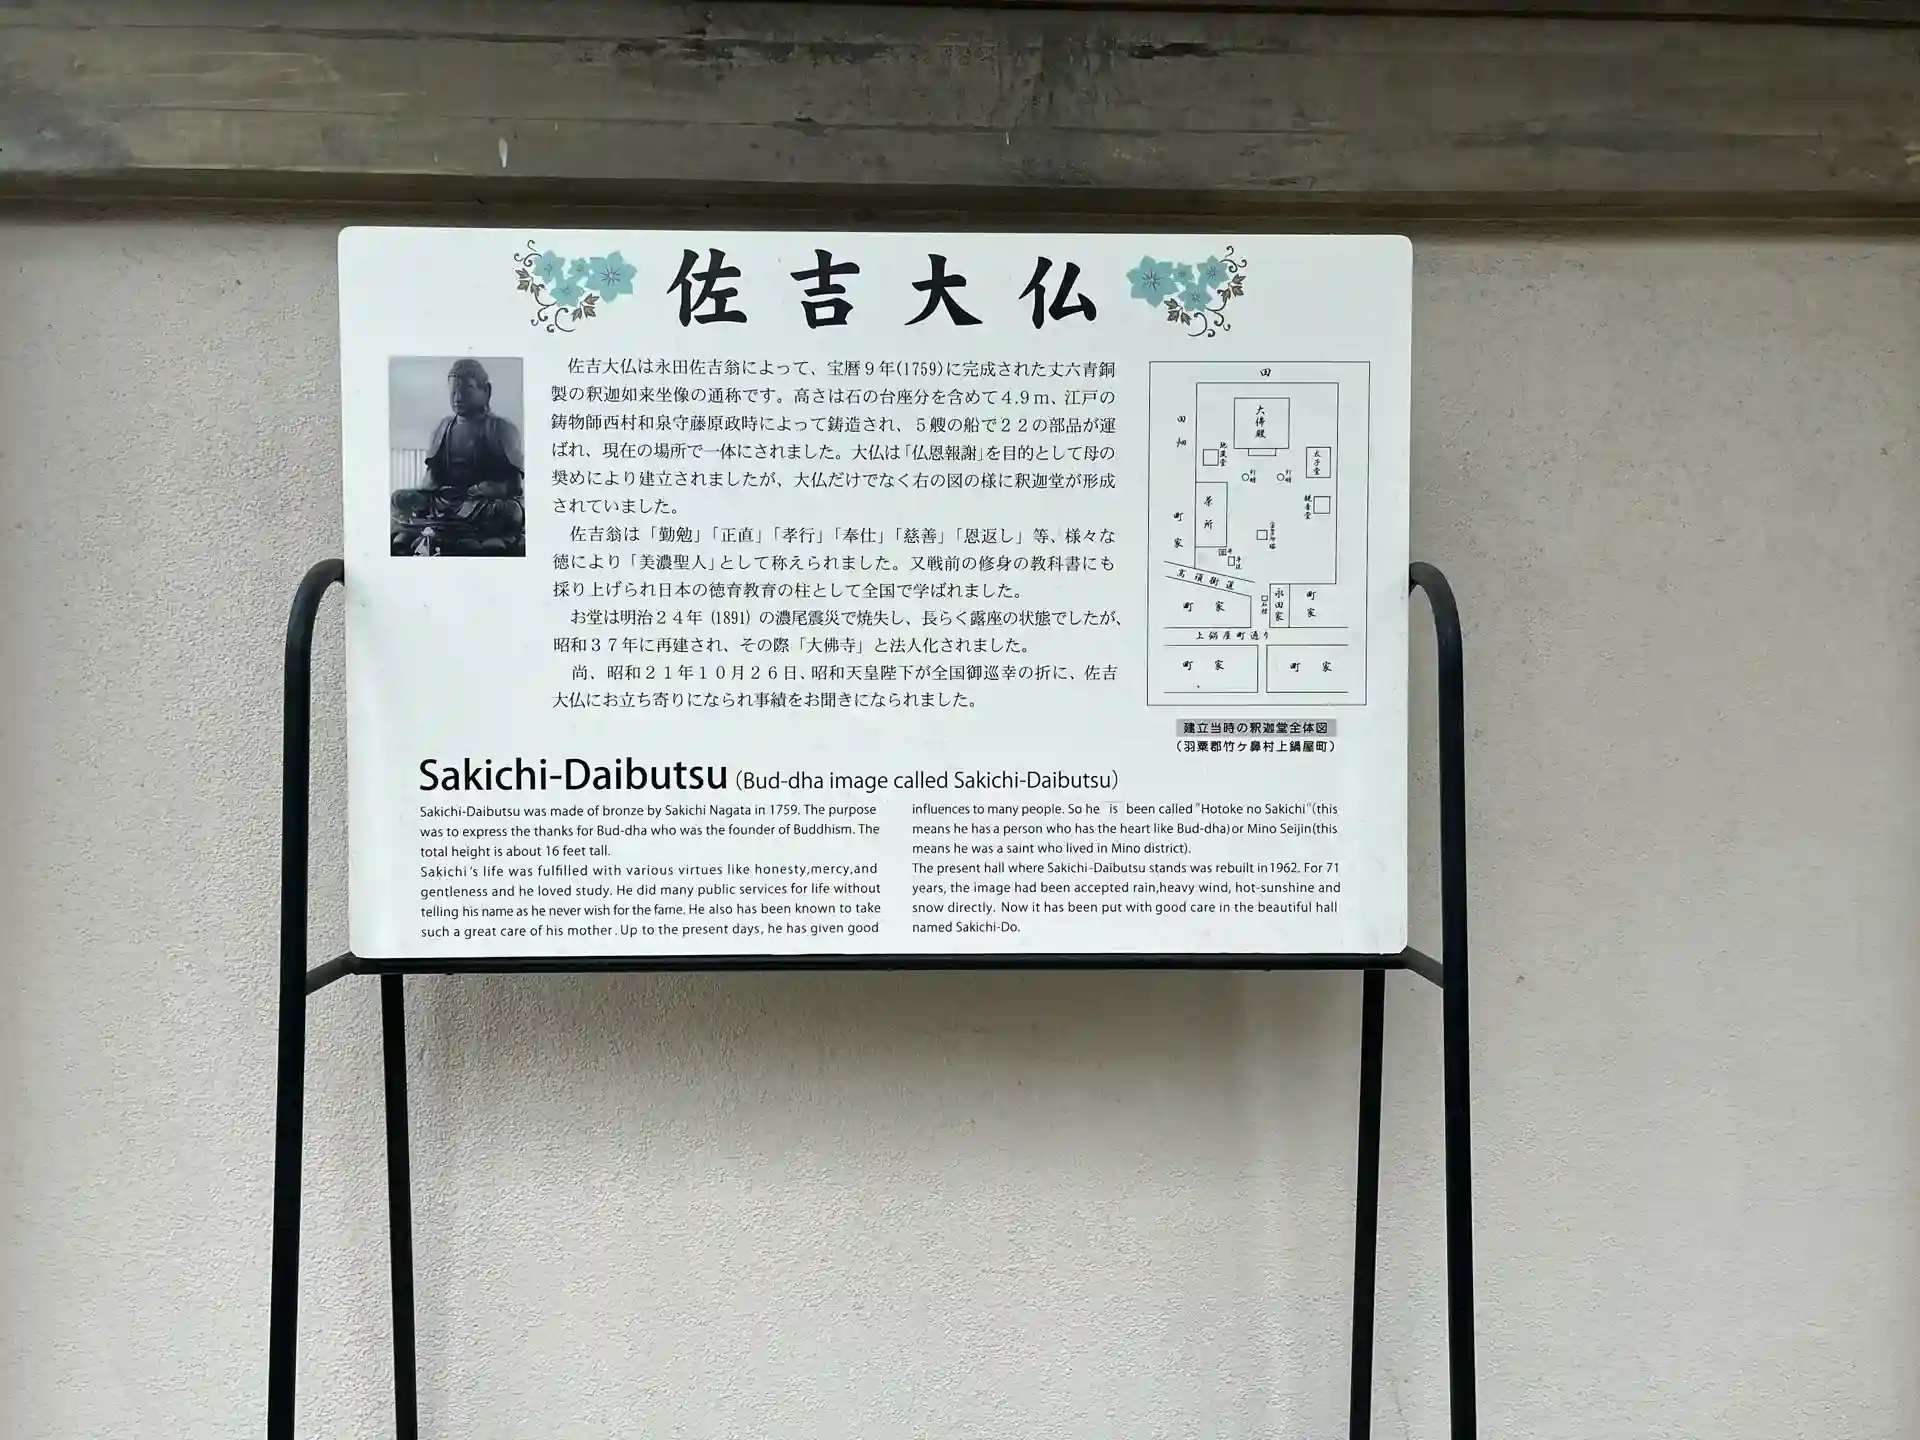 佐吉大仏
佐吉大仏は永田佐吉翁によって、宝暦９年(1759)に完成された丈六青銅
製の釈迦如来坐像の通称です。高さは石の台座分を含めて４.９ｍ、江戸の
鋳物師西村和泉守藤原政時によって鋳造され、５艘の船で２２の部品が運
ばれ、現在の場所で一体にされました。大仏は「仏恩報謝」を目的として母の
奨めにより建立されましたが、大仏だけでなく右の図の様に釈迦堂が形成
されていました。
佐吉翁は「勤勉」「正直」「孝行」「奉仕」「慈善」「恩返し」等、様々な
徳により「美濃聖人」として称えられました。又戦前の修身の教科書にも
採り上げられ日本の徳育教育の柱として全国で学ばれました。
お堂は明治２４年 (1891) の濃尾震災で焼失し、長らく露座の状態でしたが、
昭和３７年に再建され、その際「大佛寺」と法人化されました。
尚、昭和２１年１０月２６日、昭和天皇陛下が全国御巡幸の折に、佐吉
大仏にお立ち寄りになられ事績をお聞きになられました。
田
田畑
大佛殿
地蔵堂
太子堂
灯明
灯明
観音堂
茶所
町家
高須街道
町家
永田家
町家
上鍋屋町通り
町家
町家
建立当時の釈迦堂全体図
（羽栗郡竹ヶ鼻村上鍋屋町）
Sakichi-Daibutsu (Bud-dha image called Sakichi-Daibutsu)
Sakichi-Daibutsu was made of bronze by Sakichi Nagata in 1759. The purpose
was to express the thanks for Bud-dha who was the founder of Buddhism. The
total height is about 16 feet tall.
Sakichi's life was fulfilled with various virtues like honesty,mercy,and
gentleness and he loved study. He did many public services for life without
telling his name as he never wish for the fame. He also has been known to take
such a great care of his mother. Up to the present days, he has given good
influences to many people. So he is been called "Hotoke no Sakichi"(this
means he has a person who has the heart like Bud-dha)or Mino Seijin(this
means he was a saint who lived in Mino district).
The present hall where Sakichi-Daibutsu stands was rebuilt in1962. For 71
years, the image had been accepted rain,heavy wind, hot-sunshine and
snow directly. Now it has been put with good care in the beautiful hall
named Sakichi-Do.